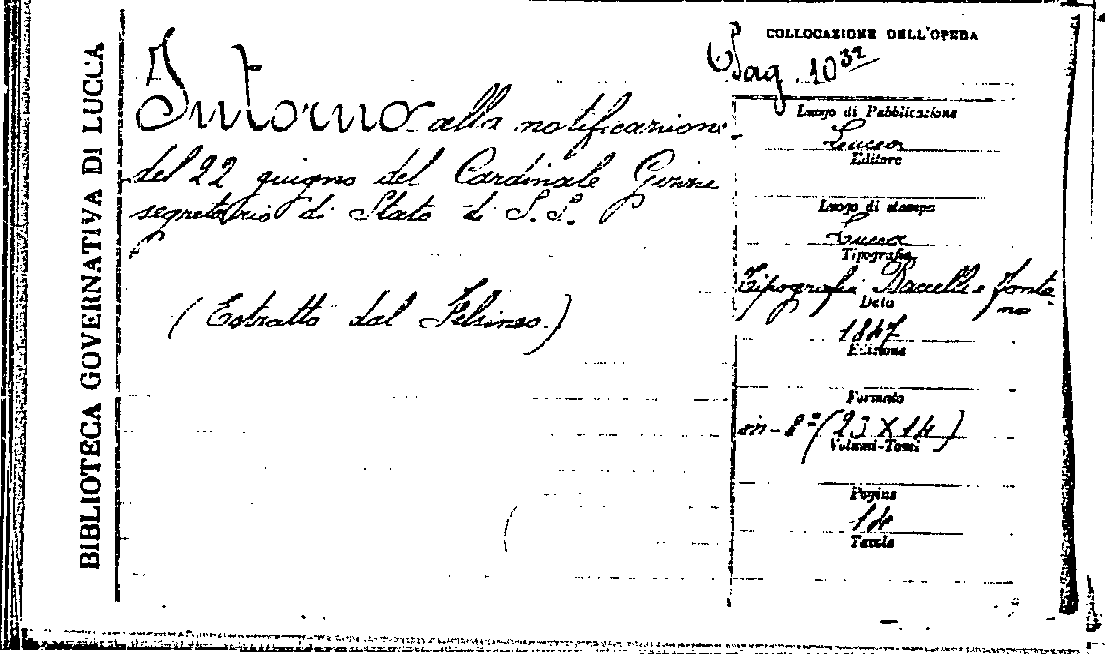 BIBLIOTECA GOVERNATIVA DI LUCCA
Intorno alla notificazione
del 22 giugno del Cardinale Gizzi
segretario di Stato di S. S.
(Estratto dal Felsineo.)
COLLOCAZIONE DELL'OPERA
Pag. 10
Luogo di Pubblicazione
Lucca
Editore
Luogo di stampa
Lucca
Tipografia
Tipografia Baccelli e Fonta
na
Data
1847
Edizione
Formato
in-8º (23 X 14)
Volumi-Tomi
Pagine
14
Tavole